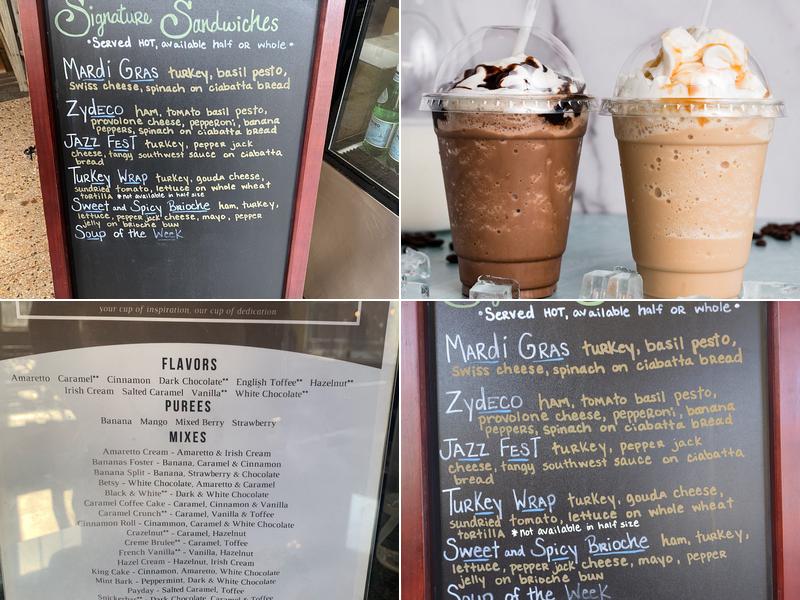 Signature Sandwiches
• Served HOT, available half or whole •
Mardi Gras turkey, basil pesto,
Swiss cheese, spinach on ciabatta bread
Zydeco ham, tomato basil pesto,
provolone cheese, pepperoni, banana
peppers, spinach on ciabatta bread
Jazz Fest turkey, pepper jack
cheese, tangy southwest sauce on ciabatta
bread
Turkey Wrap turkey, gouda cheese,
sundried tomato, lettuce on whole wheat
tortilla *not available in half size
Sweet and Spicy Brioche ham, turkey,
lettuce, pepper jack cheese, mayo, pepper
jelly on brioche bun
Soup of the Week
your cup of inspiration, our cup of dedication
FLAVORS
Amaretto Caramel** Cinnamon Dark Chocolate** English Toffee** Hazelnut**
Irish Cream Salted Caramel Vanilla** White Chocolate**
PUREES
Banana Mango Mixed Berry Strawberry
MIXES
Amaretto Cream - Amaretto & Irish Cream
Bananas Foster - Banana, Caramel & Cinnamon
Banana Split - Banana, Strawberry & Chocolate
Betsy - White Chocolate, Amaretto & Caramel
Black & White** - Dark & White Chocolate
Caramel Coffee Cake - Caramel, Cinnamon & Vanilla
Caramel Crunch** - Caramel, Vanilla & Toffee
Cinnamon Roll - Cinammon, Caramel & White Chocolate
Crazelnut** - Caramel, Hazelnut
Creme Brulee** - Caramel, Toffee
French Vanilla** - Vanilla, Hazelnut
Hazel Cream - Hazelnut, Irish Cream
King Cake - Cinnamon, Amaretto, White Chocolate
Mint Bark - Peppermint, Dark & White Chocolate
Payday - Salted Caramel, Toffee
Snickerbar** - Dark Chocolate, Caramel & Toffee
• Served HOT, available half or whole •
Mardi Gras turkey, basil pesto,
Swiss cheese, spinach on ciabatta bread
Zydeco ham, tomato basil pesto,
provolone cheese, pepperoni, banana
peppers, spinach on ciabatta bread
Jazz Fest turkey, pepper jack
cheese, tangy southwest sauce on ciabatta
bread
Turkey Wrap turkey, gouda cheese,
sundried tomato, lettuce on whole wheat
tortilla *not available in half size
Sweet and Spicy Brioche ham, turkey,
lettuce, pepper jack cheese, mayo, pepper
jelly on brioche bun
Soup of the Week